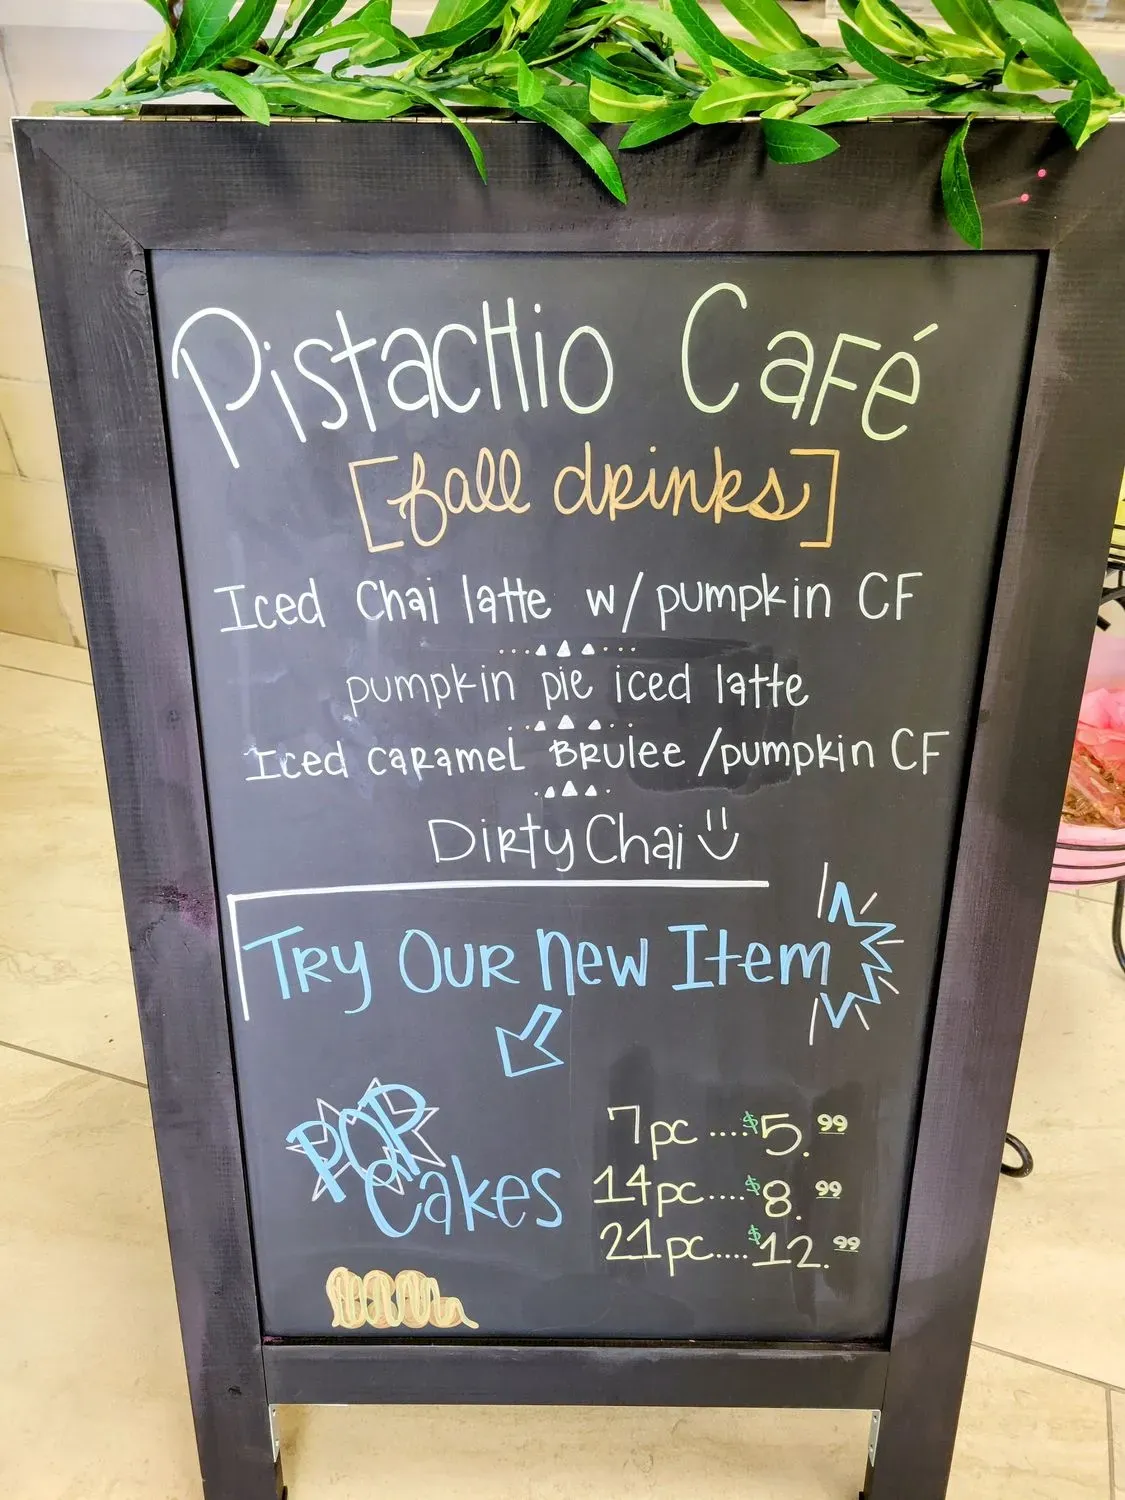 Pistachio Café
[fall drinks]
Iced Chai latte w/ pumpkin CF
pumpkin pie iced latte
Iced caramel Brulee /pumpkin CF
Dirty Chai
Try Our new Item
POP
Cakes
7pc ....$5.99
14pc....$8.99
21pc....$12.99